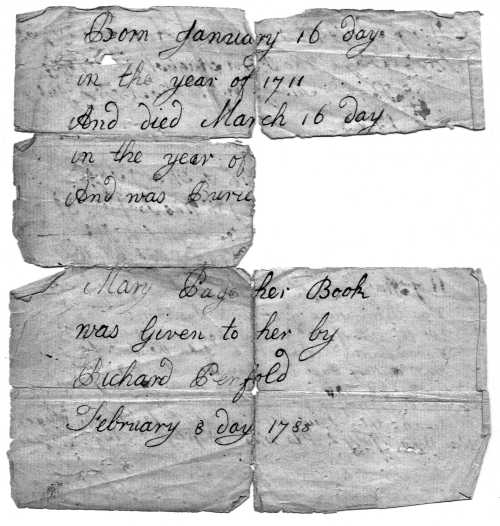 Born January 16 day
in the year of 1711
And died March 16 day
in the year of
And was Burie
Mary Page her Book
was Given to her by
Richard Penfold
February 8 day 1788